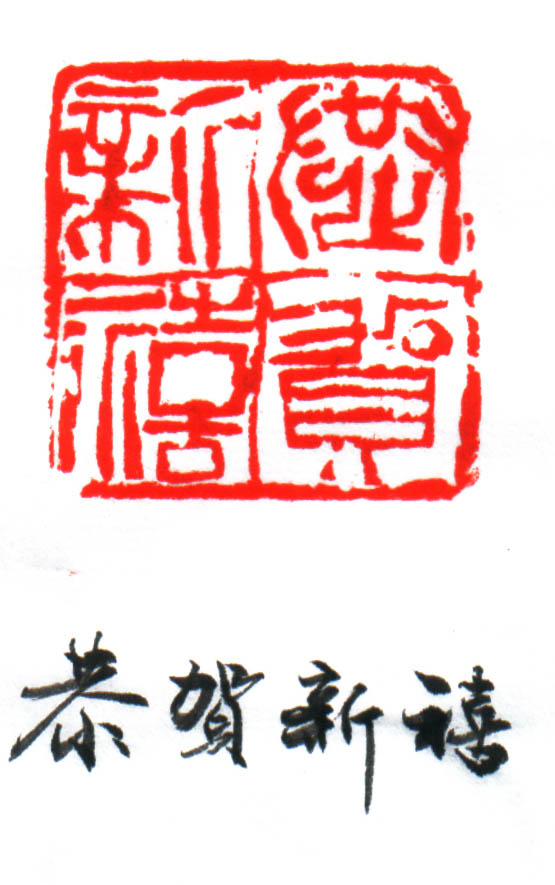 恭賀
新禧
恭賀新禧